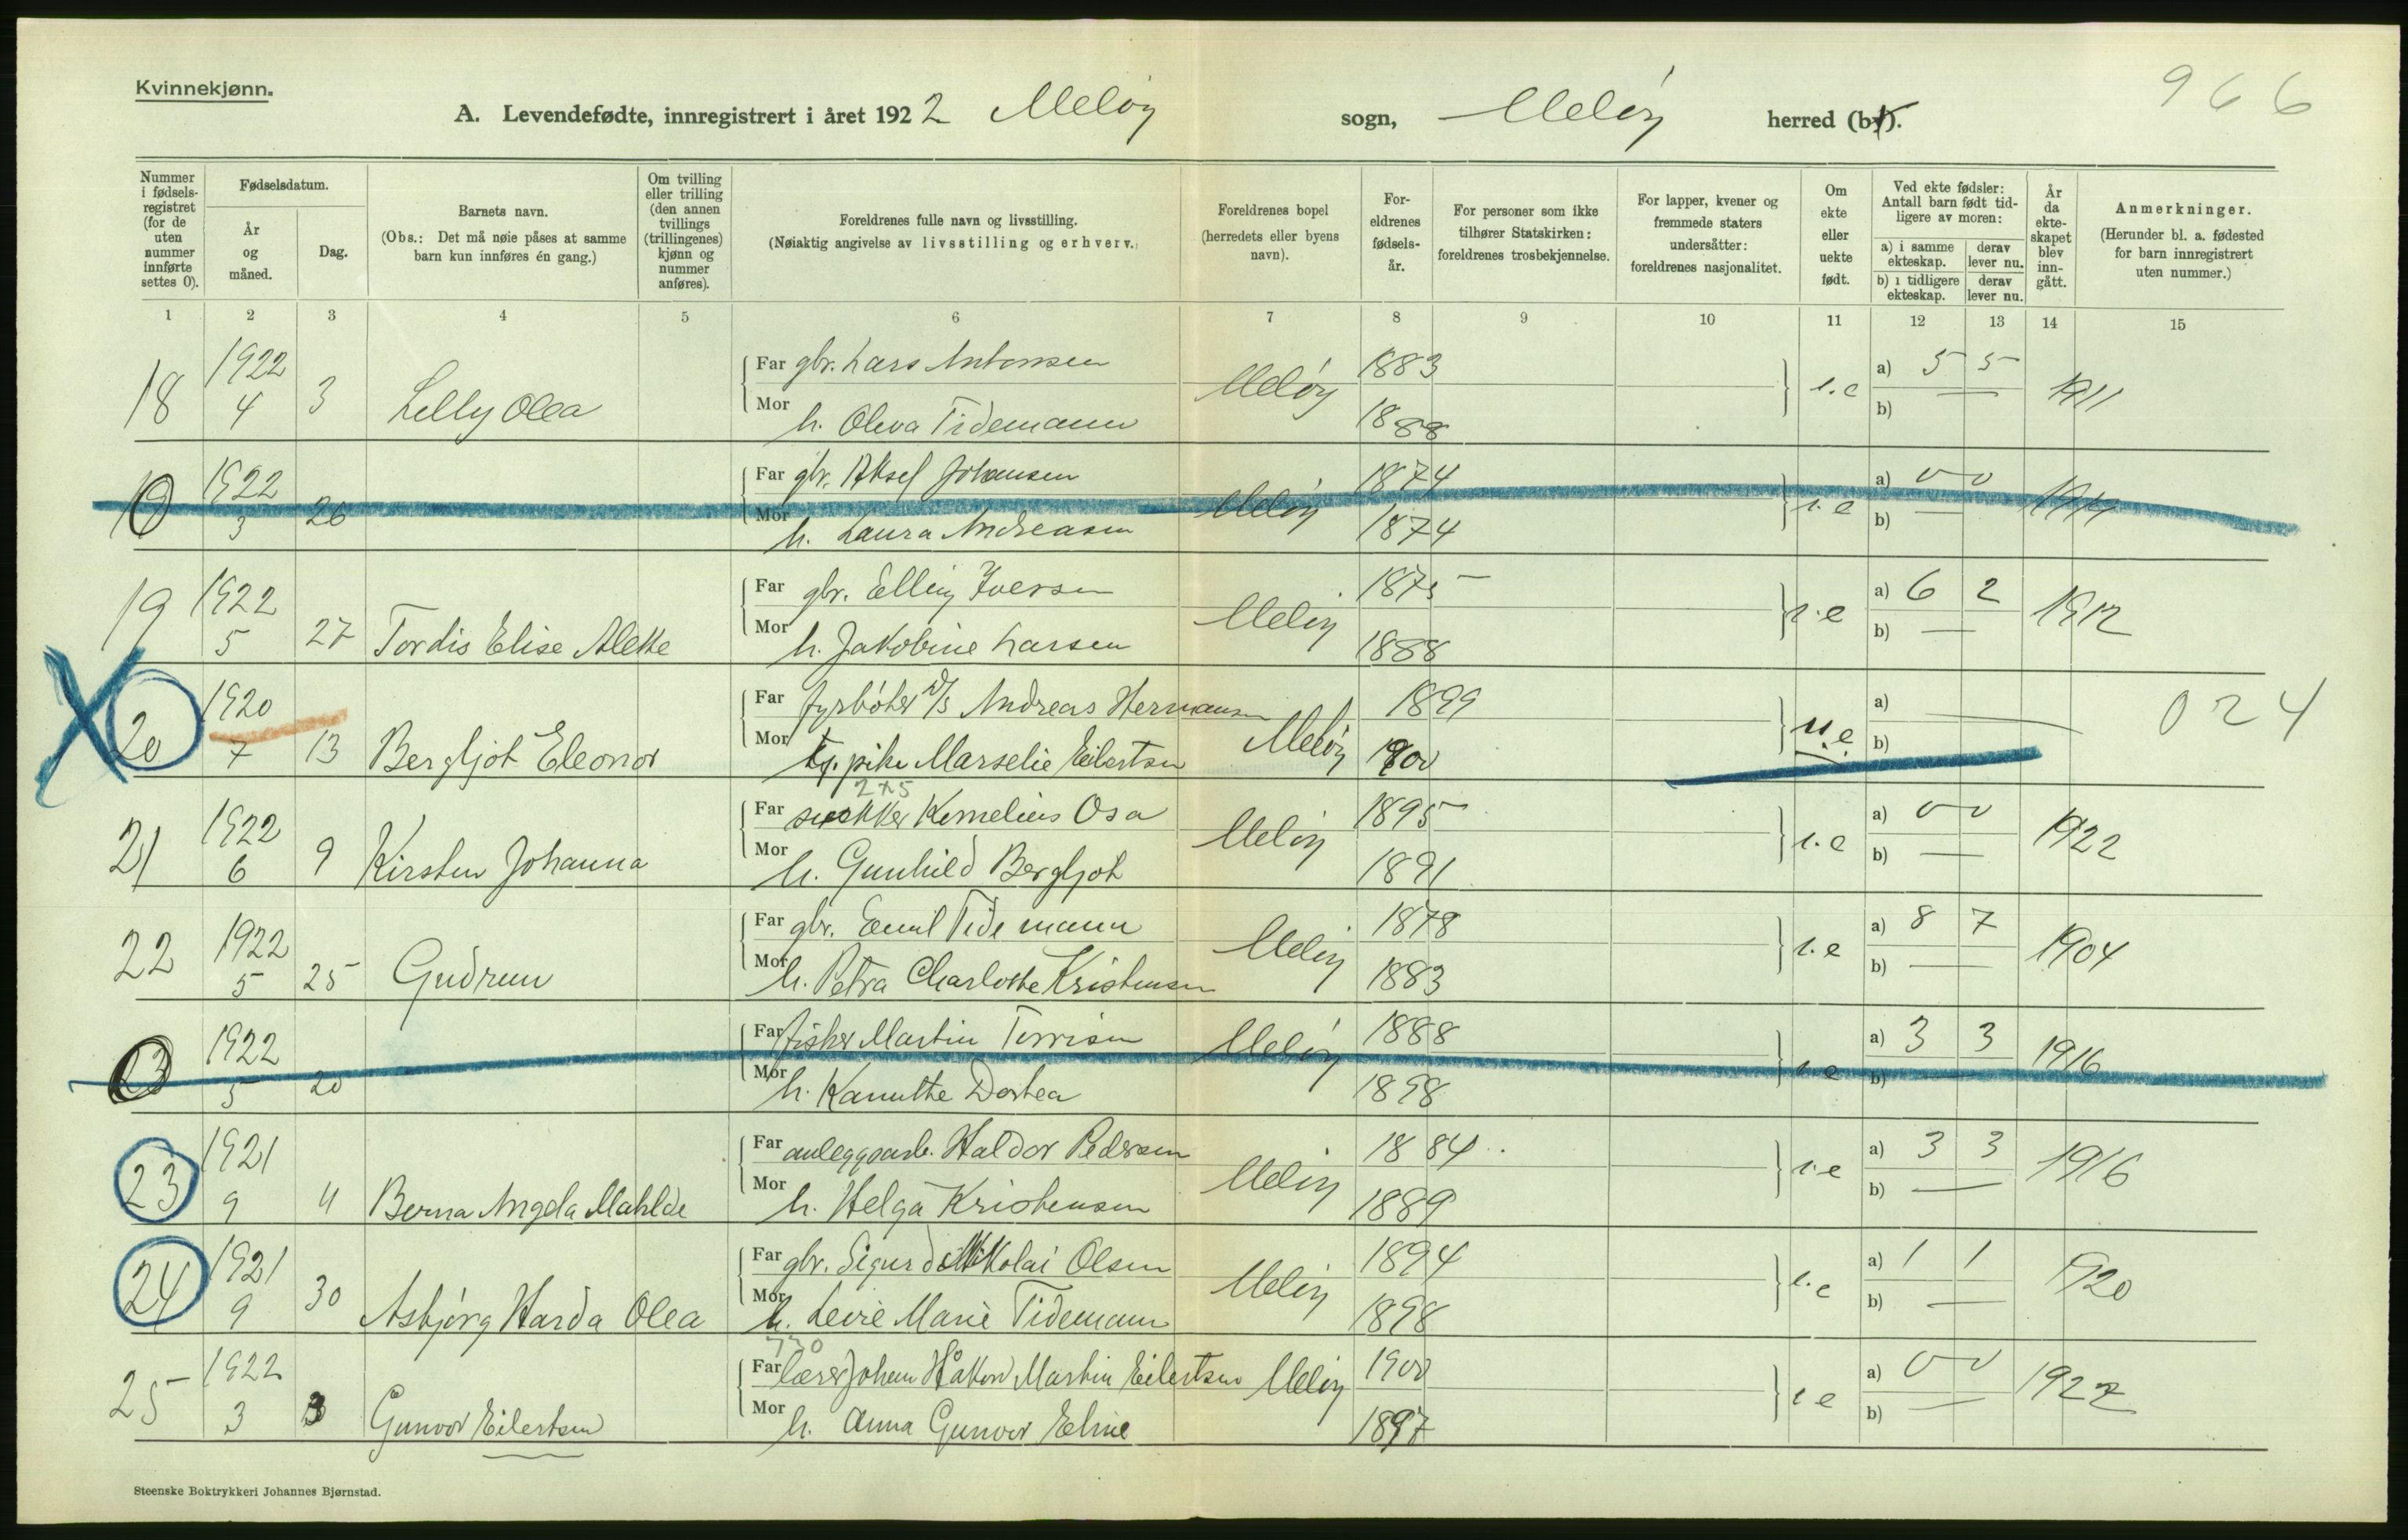 Kvinnekjønn.
A. Levendefødte, innregistrert i året 1922 Meløy sogn, Meløy herred (by).
966
Nummer i fødsels-registret (for de uten nummer innførte settes 0).
Fødselsdatum.
År og måned.
Dag.
Barnets navn.
(Obs.: Det må nøie påses at samme barn kun innføres én gang.)
Om tvilling eller trilling (den annen tvillings (trillingenes) kjønn og nummer anføres).
Foreldrenes fulle navn og livsstilling.
(Nøiaktig angivelse av livsstilling og erhverv.)
Foreldrenes bopel (herredets eller byens navn).
For-eldrenes fødsels-år.
For personer som ikke tilhører Statskirken: foreldrenes trosbekjennelse.
For lapper, kvener og fremmede staters undersåtter: foreldrenes nasjonalitet.
Om ekte eller uekte født.
Ved ekte fødsler: Antall barn født tid-ligere av moren:
a) i samme ekteskap.
derav lever nu.
b) i tidligere ekteskap.
derav lever nu.
År da ekte-skapet blev inn-gått.
Anmerkninger.
(Herunder bl. a. fødested for barn innregistrert uten nummer.)
1 2 3 4 5 6 7 8 9 10 11 12 13 14 15
1922 Far gbr. Lars Antonsen 1883 a) 5 5
18 4 3 Lilly Olea Meløy e.e 1911
Mor h. Oleva Tidemann 1888 b) —
1922 Far gbr. Aksel Johansen 1874 a) 0 0
0 3 26 Meløy e.e
Mor h. Laura Andreasen 1874 b) —
19 1922 Far gbr. Elling Iversen 1875 a) 6 2
5 27 Tordis Elise Alette Meløy e.e 1912
Mor h. Jakobine Larsen 1888 b) —
1920 Far fyrbøter d/s Andreas Hermansen 1899 a) — 024
20 7 13 Bergljot Eleonor Meløy u.e
Mor tj. pike Marselie Eilertsen 1900 b)
2x5
1922 Far snekker Kornelius Osa 1895 a) 0 0
21 6 9 Kirsten Johanna Meløy e.e 1922
Mor h. Gunhild Bergljot 1891 b) —
1922 Far gbr. Emil Tidemann 1878 a) 8 7
22 5 25 Gudrun Meløy e.e 1904
Mor h. Petra Charlotte Kristensen 1883 b) —
1922 Far fisker Martin 1888 a) 3 3
5 20 Meløy e.e 1916
Mor h. Dortea 1898 b) —
1921 Far anleggsarb. Haldor Pedersen 1884 a) 3 3
23 9 4 Berna Angela Matilde Meløy e.e 1916
Mor h. Helga Kristensen 1889 b) —
1921 Far gbr. Sigurd Nikolai Olsen 1894 a) 1 1
24 9 30 Asbjørg Harda Olea Meløy e.e 1920
Mor h. Marie Tidemann 1898 b) —
1922 Far lærer Johan Håkon Martin Eilertsen 1900 a) 0 0
25 3 3 Gunvor Eilertsen Meløy e e 1922
Mor h. Anna Gunvor Eline 1897 b) —
Steenske Boktrykkeri Johannes Bjørnstad.